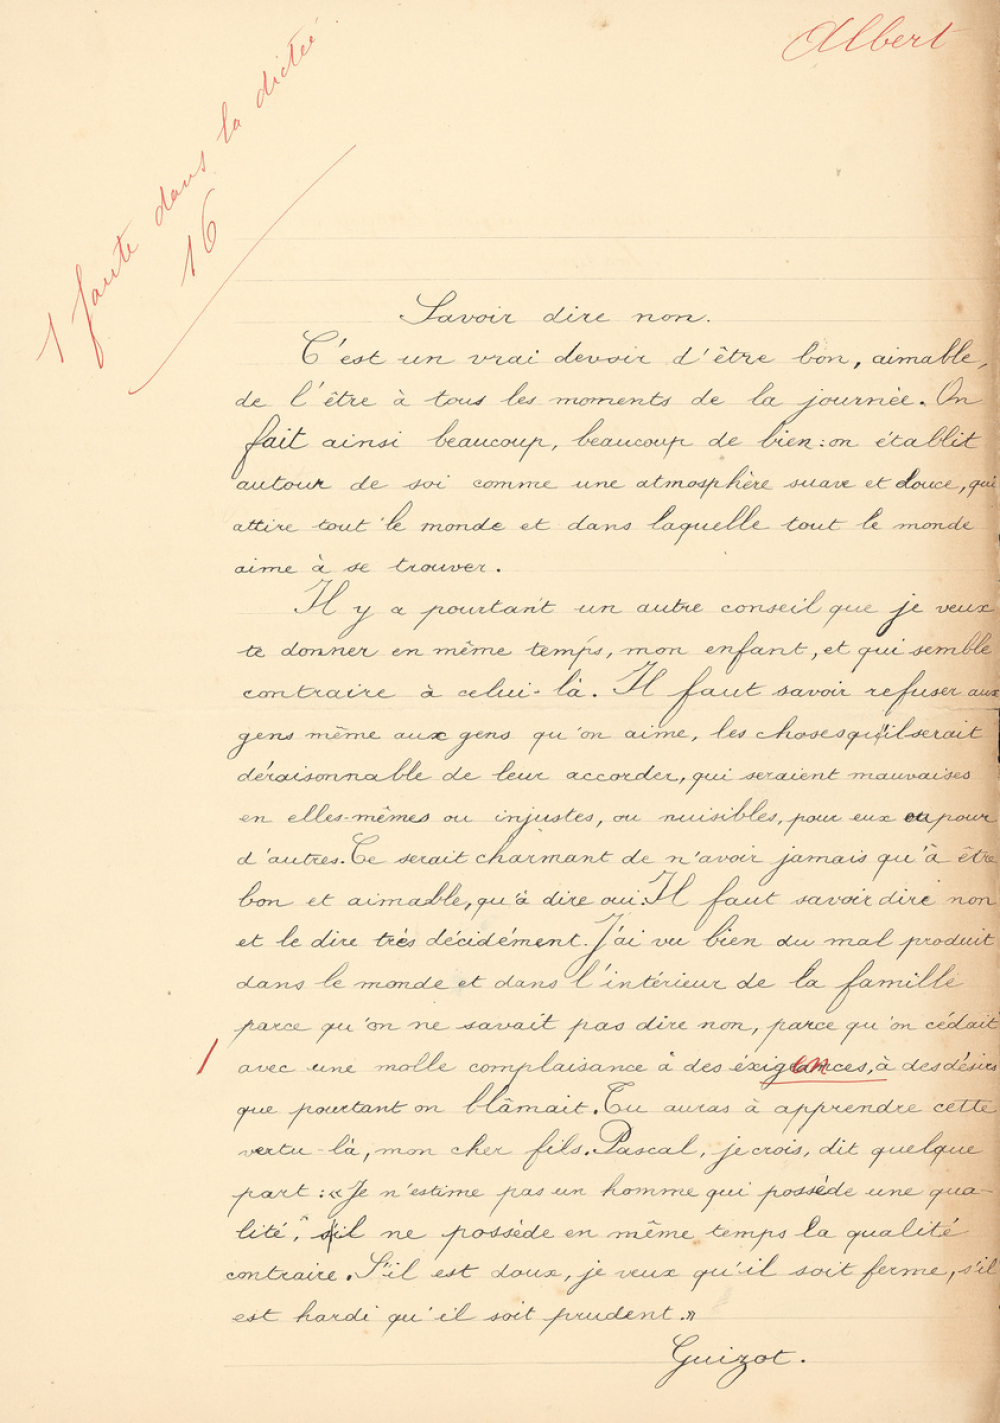 Albert
1 faute dans la dictée
16
Savoir dire non.
C'est un vrai devoir d'être bon, aimable,
de l'être à tous les moments de la journée. On
fait ainsi beaucoup, beaucoup de bien : on établit
autour de soi comme une atmosphère suave et douce, qui
attire tout le monde et dans laquelle tout le monde
aime à se trouver.
Il y a pourtant un autre conseil que je veux
te donner en même temps, mon enfant, et qui semble
contraire à celui-là. Il faut savoir refuser aux
gens même aux gens qu'on aime, les choses qu'il serait
déraisonnable de leur accorder, qui seraient mauvaises
en elles-mêmes ou injustes, ou nuisibles, pour eux ou pour
d'autres. Ce serait charmant de n'avoir jamais qu'à être
bon et aimable, qu'à dire oui. Il faut savoir dire non
et le dire très décidément. J'ai vu bien du mal produit
dans le monde et dans l'intérieur de la famille
parce qu'on ne savait pas dire non, parce qu'on cédait
avec une molle complaisance à des éxigences, à des désirs
que pourtant on blâmait. Tu auras à apprendre cette
vertu-là, mon cher fils. Pascal, je crois, dit quelque
part : « Je n'estime pas un homme qui possède une qua-
lité, s'il ne possède en même temps la qualité
contraire. S'il est doux, je veux qu'il soit ferme, s'il
est hardi qu'il soit prudent. »
Guizot.